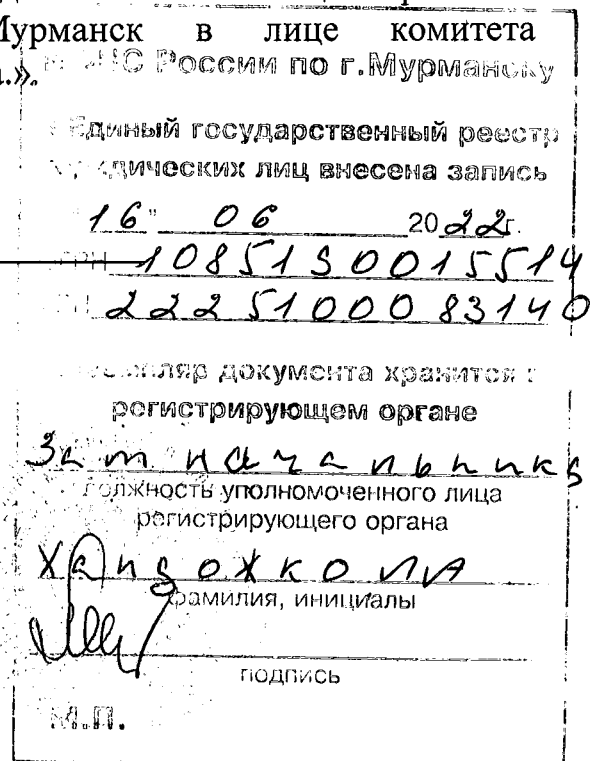 Мурманск в лице комитета
России по г.Мурманску
Единый государственный реестр
лиц внесена запись
16" 06 2022г.
1085190015514
2225100083140
документа хранится
регистрирующем органе
Зам начальника
должность уполномоченного лица
регистрирующего органа
Хандожко ЛА
фамилия, инициалы
подпись
М.П.